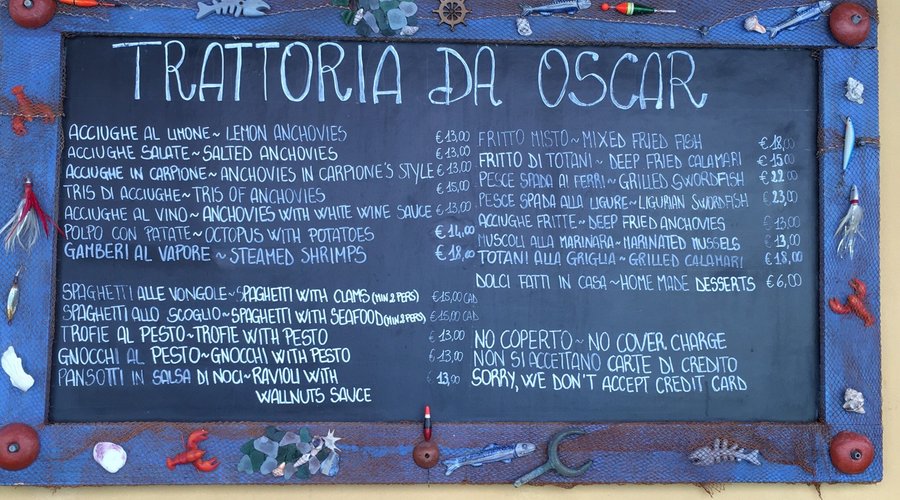 TRATTORIA DA OSCAR
ACCIUGHE AL LIMONE~LEMON ANCHOVIES €13,00
ACCIUGHE SALATE~SALTED ANCHOVIES €13,00
ACCIUGHE IN CARPIONE~ANCHOVIES IN CARPIONE'S STYLE €13,00
TRIS DI ACCIUGHE~TRIS OF ANCHOVIES €15,00
ACCIUGHE AL VINO~ANCHOVIES WITH WHITE WINE SAUCE €13,00
POLPO CON PATATE~OCTOPUS WITH POTATOES €14,00
GAMBERI AL VAPORE~STEAMED SHRIMPS €18,00
SPAGHETTI ALLE VONGOLE~SPAGHETTI WITH CLAMS (MIN 2 PERS) €15,00 CAD
SPAGHETTI ALLO SCOGLIO~SPAGHETTI WITH SEAFOOD (MIN 2 PERS) €15,00 CAD
TROFIE AL PESTO~TROFIE WITH PESTO €13,00
GNOCCHI AL PESTO~GNOCCHI WITH PESTO €13,00
PANSOTTI IN SALSA DI NOCI~RAVIOLI WITH €13,00
WALLNUTS SAUCE
FRITTO MISTO~MIXED FRIED FISH €18,00
FRITTO DI TOTANI~DEEP FRIED CALAMARI €15,00
PESCE SPADA AI FERRI~GRILLED SWORDFISH €22,00
PESCE SPADA ALLA LIGURE~LIGURIAN SWORDFISH €23,00
ACCIUGHE FRITTE~DEEP FRIED ANCHOVIES €13,00
MUSCOLI ALLA MARINARA~MARINATED MUSSELS €13,00
TOTANI ALLA GRIGLIA~GRILLED CALAMARI €18,00
DOLCI FATTI IN CASA~HOME MADE DESSERTS €6,00
NO COPERTO~NO COVER CHARGE
NON SI ACCETTANO CARTE DI CREDITO
SORRY, WE DON'T ACCEPT CREDIT CARD